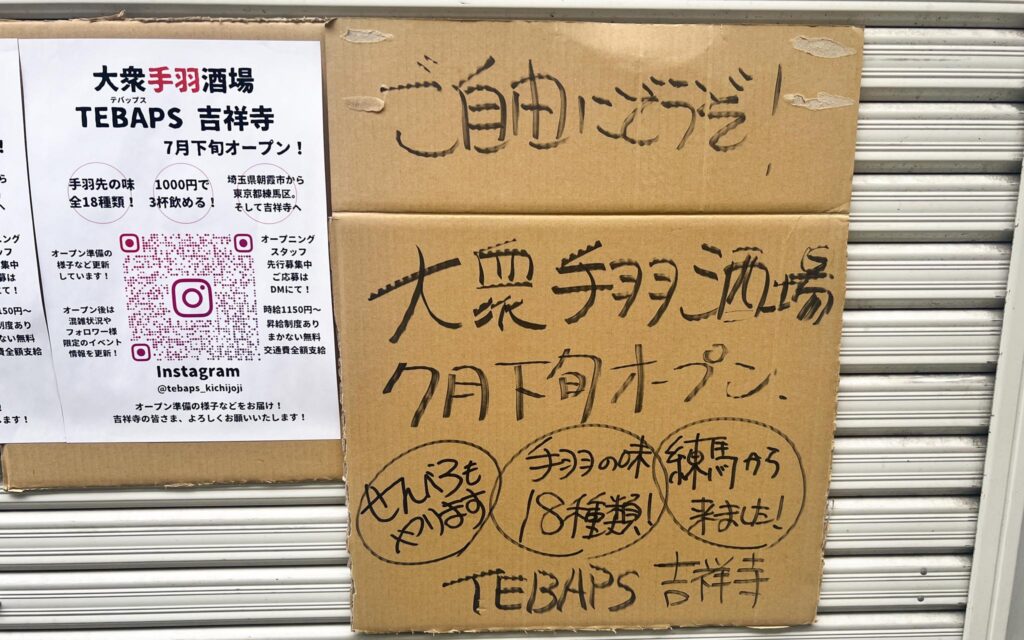 大衆手羽酒場
テバップス
TEBAPS 吉祥寺
7月下旬オープン！
手羽先の味
全18種類！
1000円で
3杯飲める！
埼玉県朝霞市から
東京都練馬区。
そして吉祥寺へ
オープン準備の
様子など更新
しています！
オープン後は
混雑状況や
フォロワー様
限定のイベント
情報を更新！
オープニング
スタッフ
先行募集中
ご応募は
DMにて！
時給1150円～
昇給制度あり
まかない無料
交通費全額支給
Instagram
@tebaps_kichijoji
オープン準備の様子などをお届け！
吉祥寺の皆さま、よろしくお願いいたします！
ご自由にどうぞ！
大衆手羽酒場
7月下旬オープン.
せんべろも
ヤリます
手羽の味
18種類！
練馬から
来ました！
TEBAPS 吉祥寺